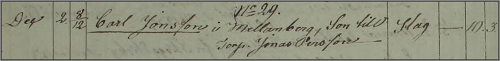 No 29.
Dec 2. 8/12 Carl Jonsson i Mellanberg, Son till Slag — 10. 3.
Torp. Jonas Persson